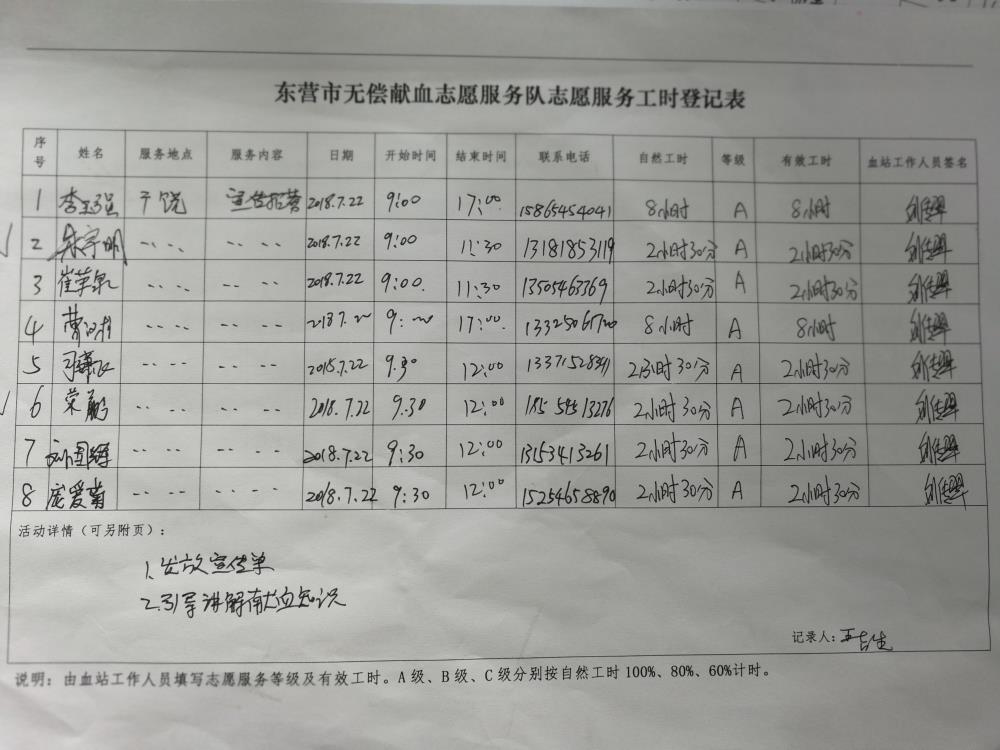 东营市无偿献血志愿服务队志愿服务工时登记表
序号 姓名 服务地点 服务内容 日期 开始时间 结束时间 联系电话 自然工时 等级 有效工时 血站工作人员签名
1 李玉强 广饶 宣传招募 2018.7.22 9:00 17:00 15865454041 8小时 A 8小时
2 2018.7.22 9:00 11:30 13181853119 2小时30分 A 2小时30分
3 2018.7.22 9:00 11:30 13505463369 2小时30分 A 2小时30分
4 9: 17:00 8小时 A 8小时
5 2018.7.22 9.30 12:00 2小时30分 A 2小时30分
6 荣鹏 2018.7.22 9.30 12:00 2小时30分 A 2小时30分
7 2018.7.22 9:30 12:00 13153413261 2小时30分 A 2小时30分
8 庞爱菊 2018.7.22 9:30 12:00 15254658890 2小时30分 A 2小时30分
活动详情（可另附页）：
1.发放宣传单
2.引导讲解献血知识
记录人：
说明：由血站工作人员填写志愿服务等级及有效工时。A级、B级、C级分别按自然工时100%、80%、60%计时。